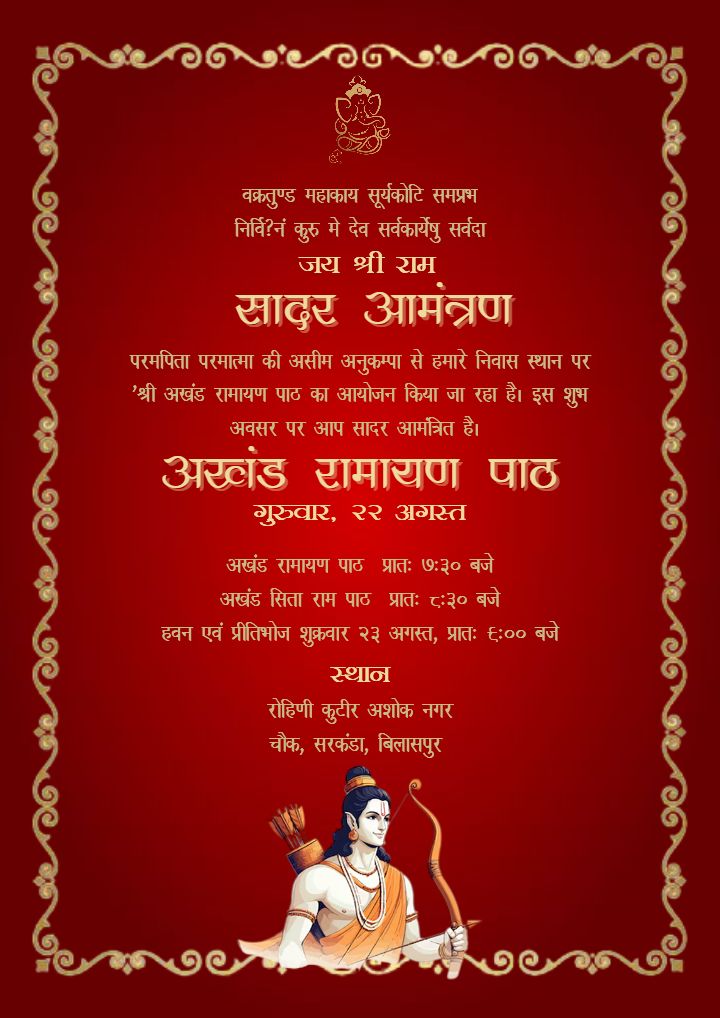 वक्रतुण्ड महाकाय सूर्यकोटि समप्रभ
निर्वि?नं कुरु मे देव सर्वकार्येषु सर्वदा
जय श्री राम
सादर आमंत्रण
परमपिता परमात्मा की असीम अनुकम्पा से हमारे निवास स्थान पर
’श्री अखंड रामायण पाठ का आयोजन किया जा रहा है। इस शुभ
अवसर पर आप सादर आमंत्रित है।
अखंड रामायण पाठ
गुरुवार, २२ अगस्त
अखंड रामायण पाठ प्रातः ७:३० बजे
अखंड सिता राम पाठ प्रातः ८:३० बजे
हवन एवं प्रीतिभोज शुक्रवार २३ अगस्त, प्रातः ९:०० बजे
स्थान
रोहिणी कुटीर अशोक नगर
चौक, सरकंडा, बिलासपुर